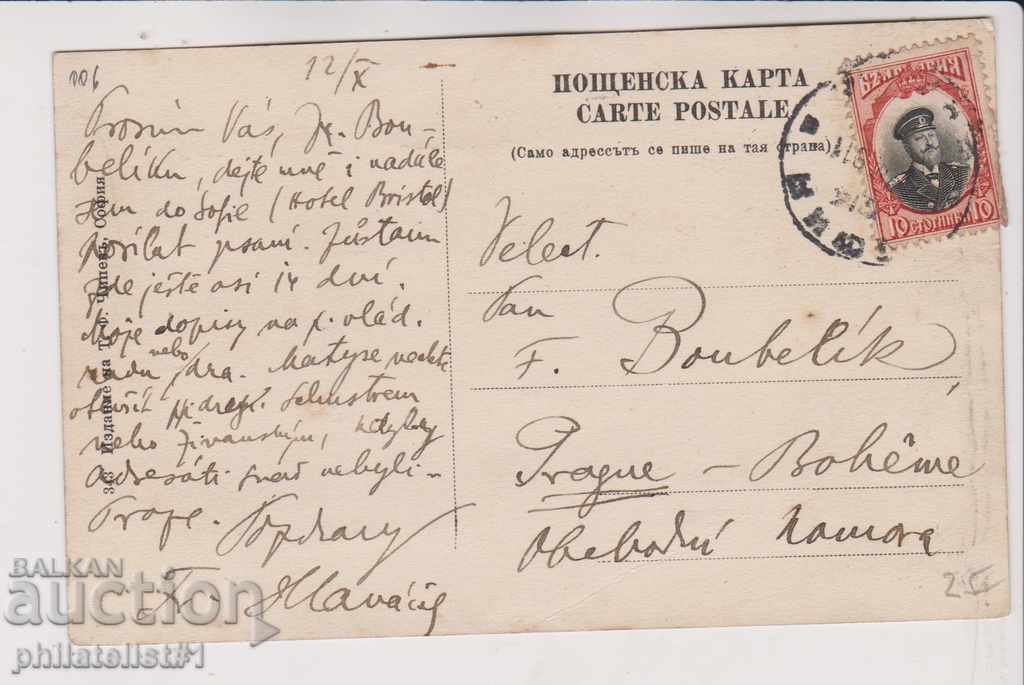 12/X
ПОЩЕНСКА КАРТА
CARTE POSTALE
(Само адрессътъ се пише на тая страна)
БЪЛГАРИЯ
10 СТОТИНКИ 10
Prosím Vás, p. Bou-
belíku, dejte mně i nadále
sem do Sofie (Hotel Bristol)
posílat psaní. Zůstanu
zde ještě asi 14 dní.
Moje dopisy na p. vlád.
radu nebo dra. Matyse nechte
p. Schustrem
nebo Živanským, kdyby
adresáti snad nebyli –
v Praze.
Pozdravy
Fr. Hlaváček
Velect.
Pan
F. Boubelík
Prague – Bohême
Obchodní komora
Издание на Т. Ф. Чипевъ, София
BALKAN
auction
philatelist#1